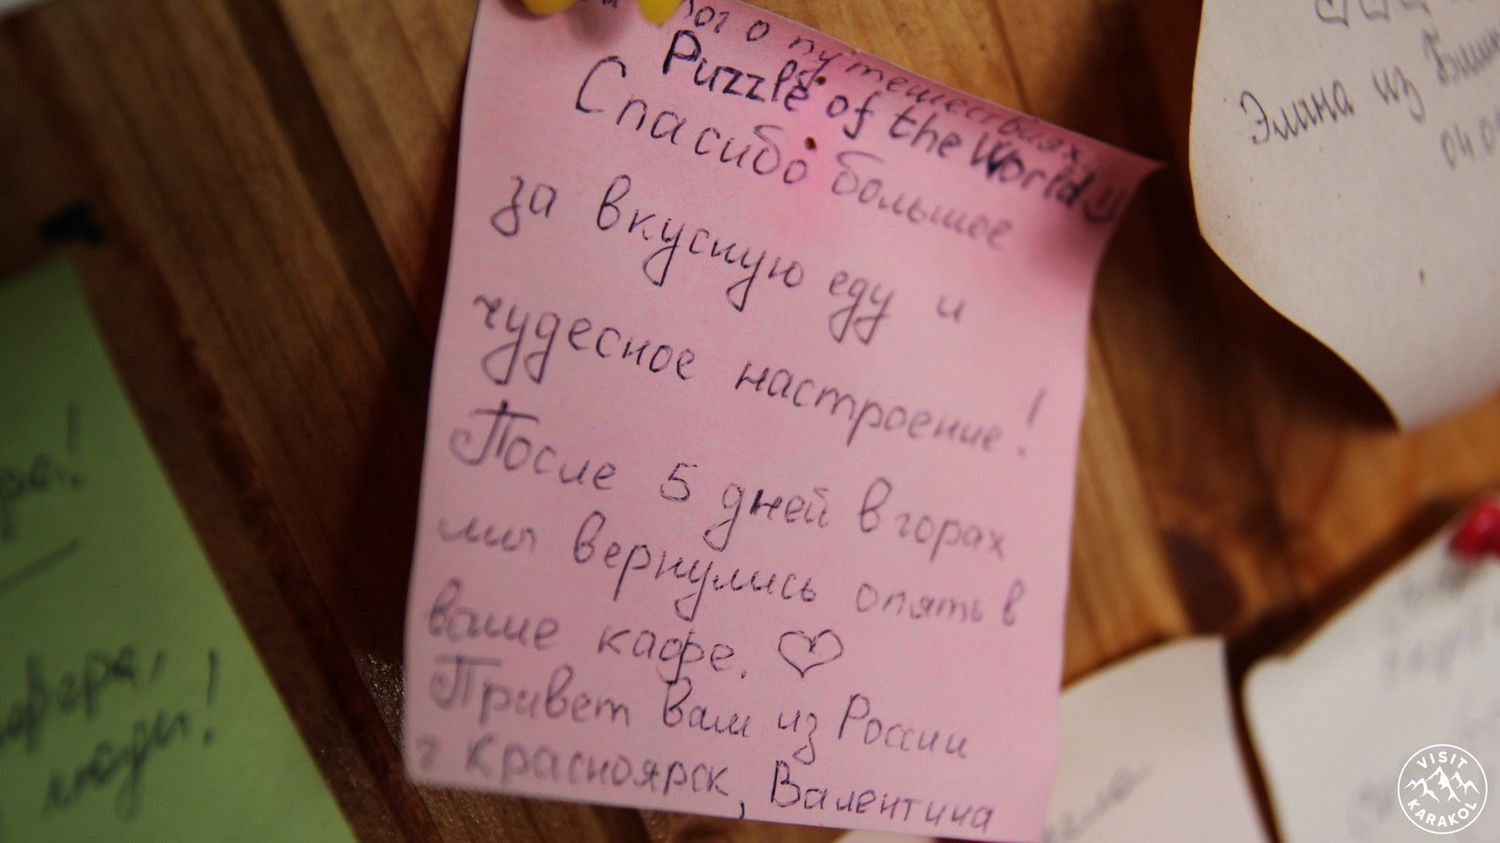 о путешествиях
Puzzle of the World
Спасибо большое
за вкусную еду и
чудесное настроение!
После 5 дней в горах
мы вернулись опять в
ваше кафе.
Привет вам из России
г Красноярск, Валентина
Элина из
04
люди!
VISIT
KARAKOL